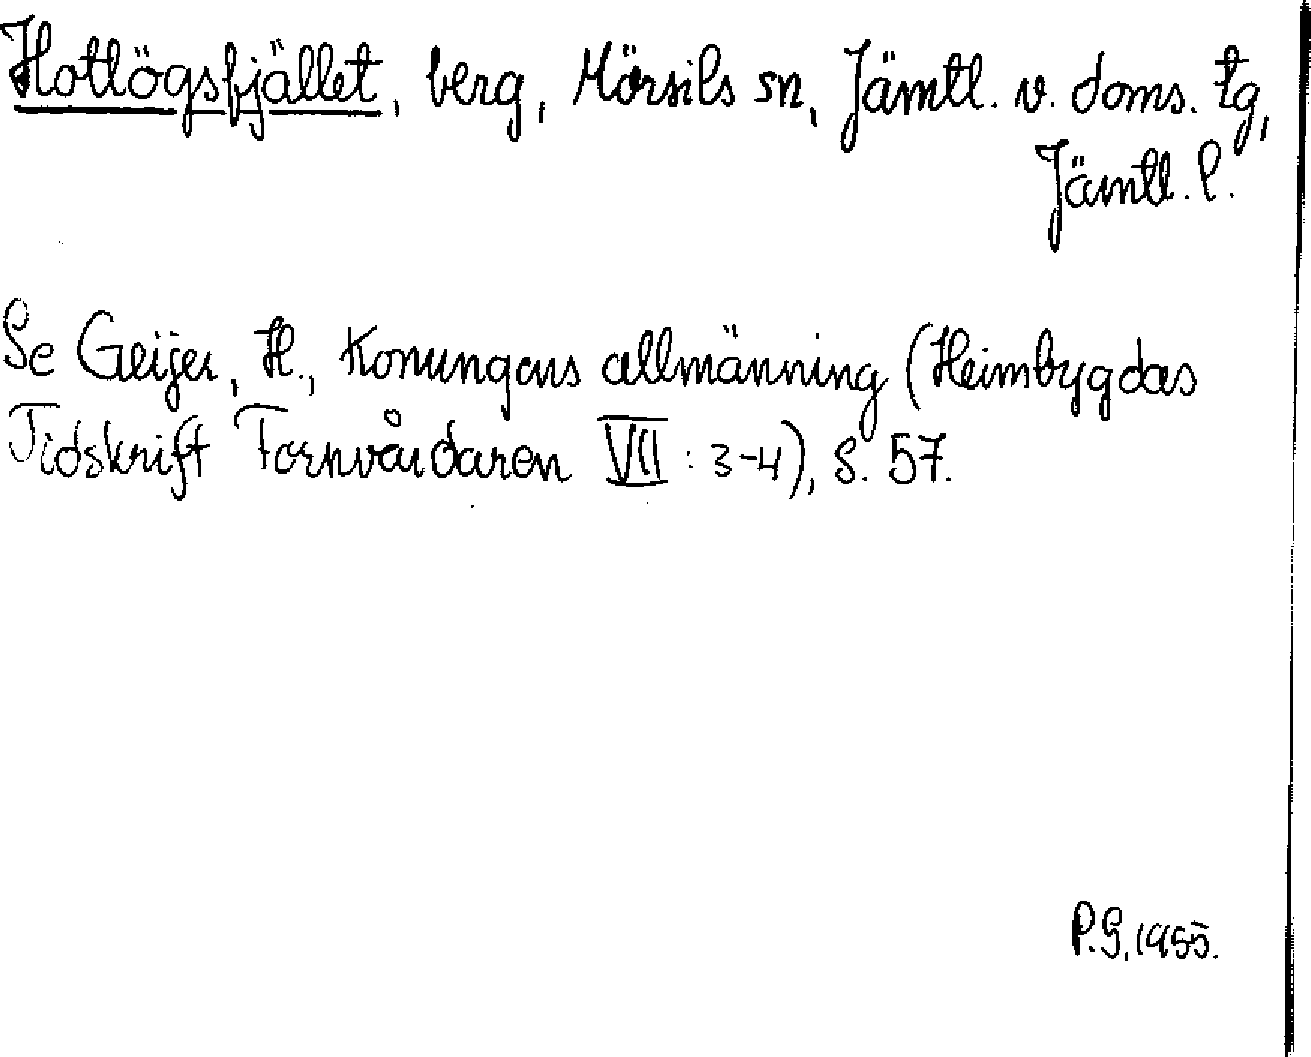 Hotlögsfjället, berg, Mörsils sn, Jämtl. v. doms. tg,
Jämtl. l.
Se Geijer, H., Konungens allmänning (Heimbygdas
Tidskrift Fornvårdaren VII : 3-4), s. 57.
P.G, 1955.